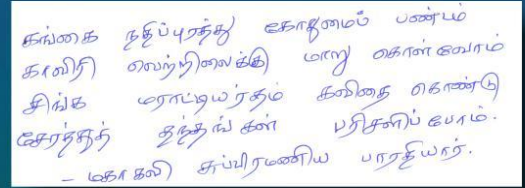 கங்கை நதிப்புரத்து கோதுமைப் பண்டம்
காவிரி வெற்றிலைக்கு மாறு கொள்வோம்
சிங்க மராட்டியர்தம் கவிதை கொண்டு
சேரத்துத் தந்தங்கள் பரிசளிப்போம்.
- மகாகவி சுப்பிரமணிய பாரதியார்.